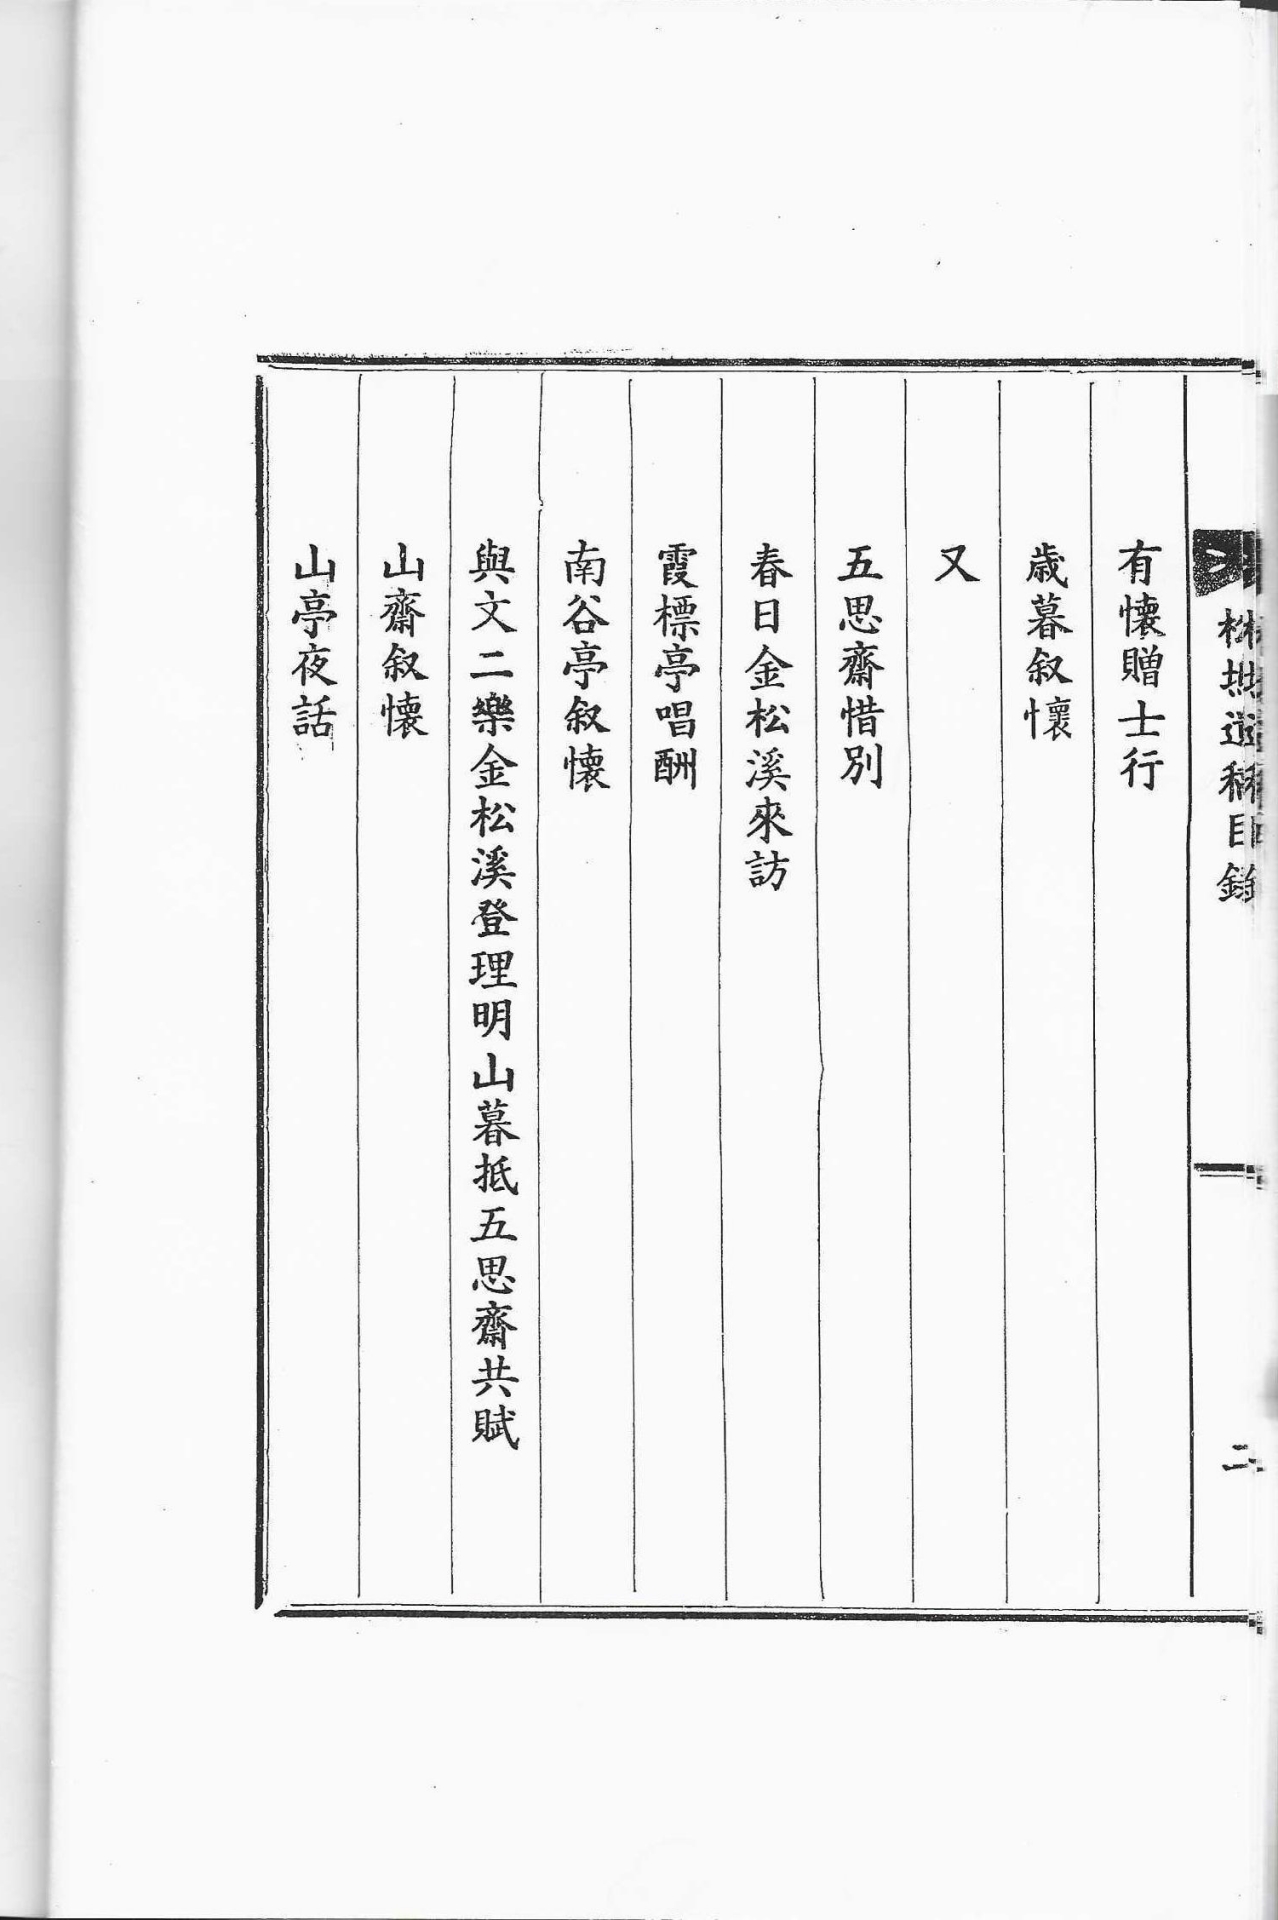 目錄
二
有懷贈士行
歲暮叙懷
又
五思齋惜別
春日金松溪來訪
霞標亭唱酬
南谷亭叙懷
與文二樂金松溪登理明山暮抵五思齋共賦
山齋叙懷
山亭夜話